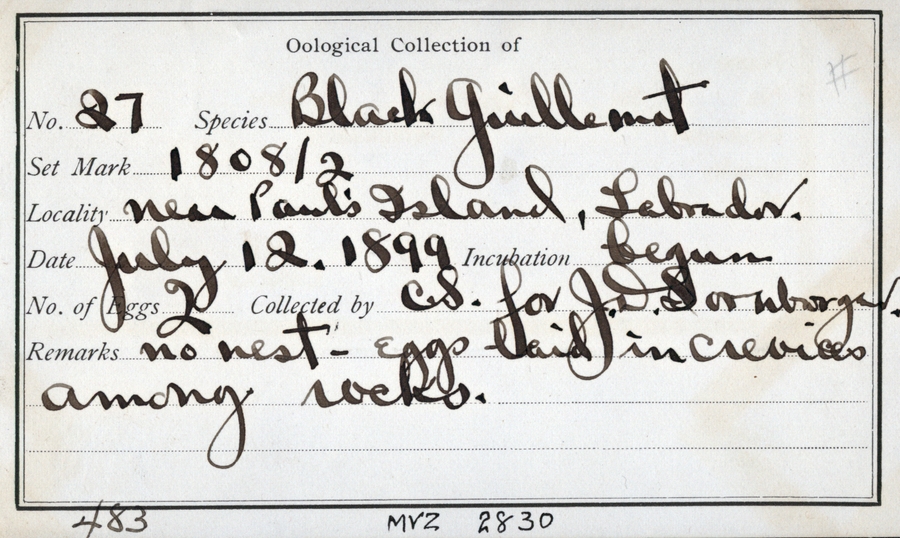 Oological Collection of
#
No. 27 Species Black Guillemot
Set Mark 1808/2
Locality near Paul's Island, Labrador.
Date July 12. 1899 Incubation begun
No. of Eggs 2 Collected by CS. for J.D. Sornborger.
Remarks no nest - eggs laid in crevices
among rocks.
483 MVZ 2830